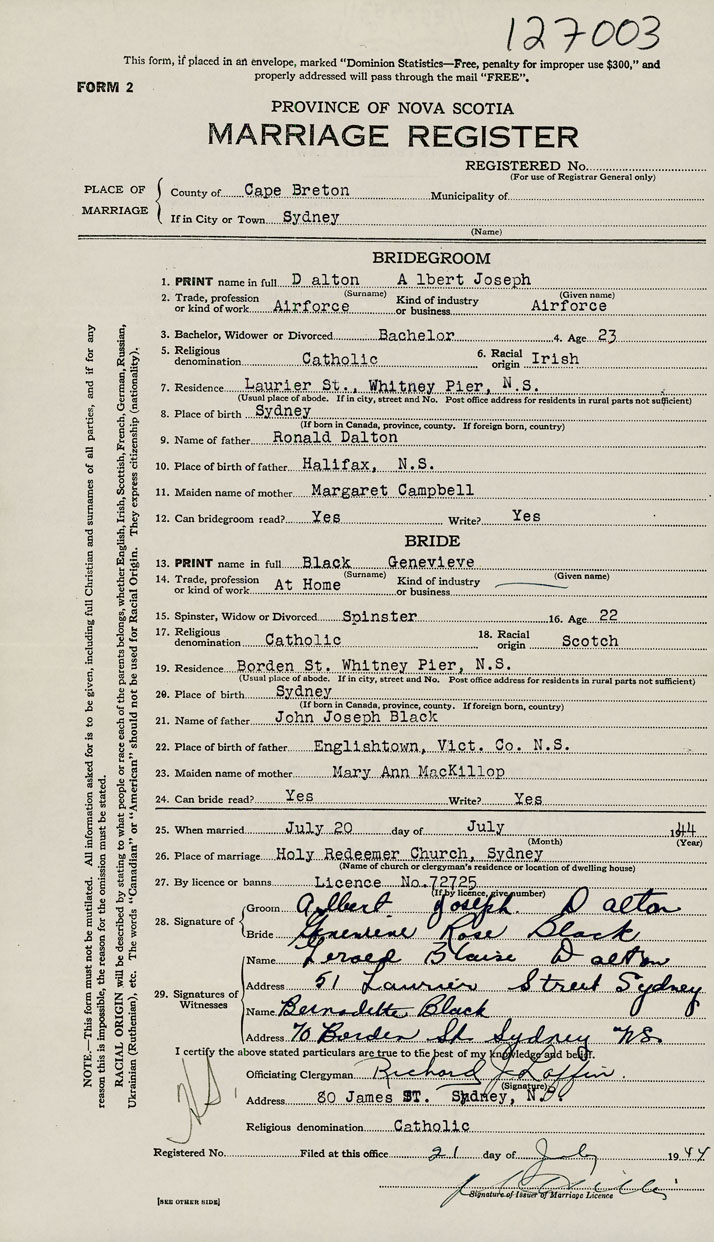 127003
This form, if placed in an envelope, marked "Dominion Statistics—Free, penalty for improper use $300," and
properly addressed will pass through the mail "FREE".
FORM 2
PROVINCE OF NOVA SCOTIA
MARRIAGE REGISTER
REGISTERED No.
(For use of Registrar General only)
PLACE OF MARRIAGE
County of Cape Breton Municipality of
If in City or Town Sydney
(Name)
BRIDEGROOM
1. PRINT name in full D alton A lbert Joseph
(Surname) (Given name)
2. Trade, profession or kind of work Airforce Kind of industry or business Airforce
3. Bachelor, Widower or Divorced Bachelor 4. Age 23
5. Religious denomination Catholic 6. Racial origin Irish
7. Residence Laurier St., Whitney Pier, N.S.
(Usual place of abode. If in city, street and No. Post office address for residents in rural parts not sufficient)
8. Place of birth Sydney
(If born in Canada, province, county. If foreign born, country)
9. Name of father Ronald Dalton
10. Place of birth of father Halifax, N.S.
11. Maiden name of mother Margaret Campbell
12. Can bridegroom read? Yes Write? Yes
BRIDE
13. PRINT name in full Black Genevieve
(Surname) (Given name)
14. Trade, profession or kind of work At Home Kind of industry or business
15. Spinster, Widow or Divorced Spinster 16. Age 22
17. Religious denomination Catholic 18. Racial origin Scotch
19. Residence Borden St. Whitney Pier, N.S.
(Usual place of abode. If in city, street and No. Post office address for residents in rural parts not sufficient)
20. Place of birth Sydney
(If born in Canada, province, county. If foreign born, country)
21. Name of father John Joseph Black
22. Place of birth of father Englishtown, Vict. Co. N.S.
23. Maiden name of mother Mary Ann MacKillop
24. Can bride read? Yes Write? Yes
25. When married July 20 day of July 1944
(Month) (Year)
26. Place of marriage Holy Redeemer Church, Sydney
(Name of church or clergyman's residence or location of dwelling house)
27. By licence or banns Licence No. 72725
(If by licence, give number)
28. Signature of
Groom Albert Joseph Dalton
Bride Genevieve Rose Black
29. Signatures of Witnesses
Name Gerald Blaise Dalton
Address 51 Laurier Street Sydney
Name Bernadette Black
Address 70 Borden St. Sydney NS.
I certify the above stated particulars are true to the best of my knowledge and belief.
Officiating Clergyman Richard J. Laffin.
(Signature)
Address 80 James ST. Sydney, N.S.
Religious denomination Catholic
Registered No. Filed at this office 21 day of July 1944
Signature of Issuer of Marriage Licence
[SEE OTHER SIDE]
NOTE.—This form must not be mutilated. All information asked for is to be given, including full Christian and surnames of all parties, and if for any
reason this is impossible, the reason for the omission must be stated.
RACIAL ORIGIN will be described by stating to what people or race each of the parents belongs, whether English, Irish, Scottish, French, German, Russian,
Ukrainian (Ruthenian), etc. The words "Canadian" or "American" should not be used for Racial Origin. They express citizenship (nationality).